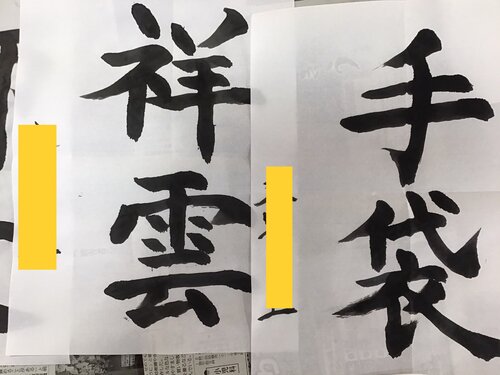 手袋
祥雲